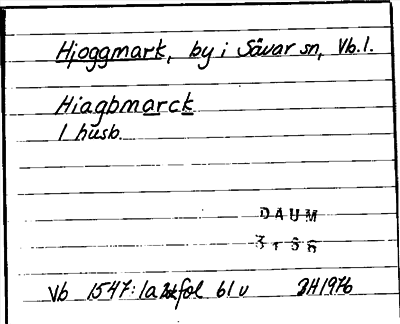 Hjoggmark, by i Sävar sn, Vb.l.
Hiagbmarck
1 husb.
DAUM
Vb 1547:1a fol 61 v BH 1976